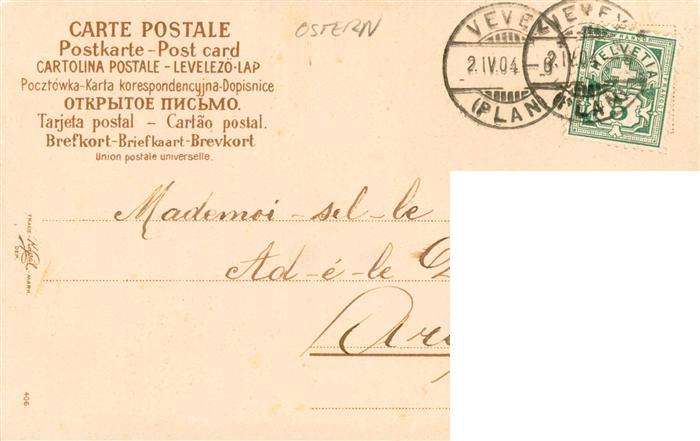 CARTE POSTALE
Postkarte-Post card
CARTOLINA POSTALE - LEVELEZŐ-LAP
Pocztówka-Karta korespondencyjna-Dopisnice
ОТКРЫТОЕ ПИСЬМО.
Tarjeta postal - Cartão postal.
Brefkort-Briefkaart-Brevkort
Union postale universelle.
OSTERN
VEVEY
2.IV.04.-9
(PLAN)
VEVEY
2.IV.04
(PLAN)
FRANCO
HELVETIA
5
Mademoi-sel-le
Ad-é-le
TRADE
MARK
DEP.
406